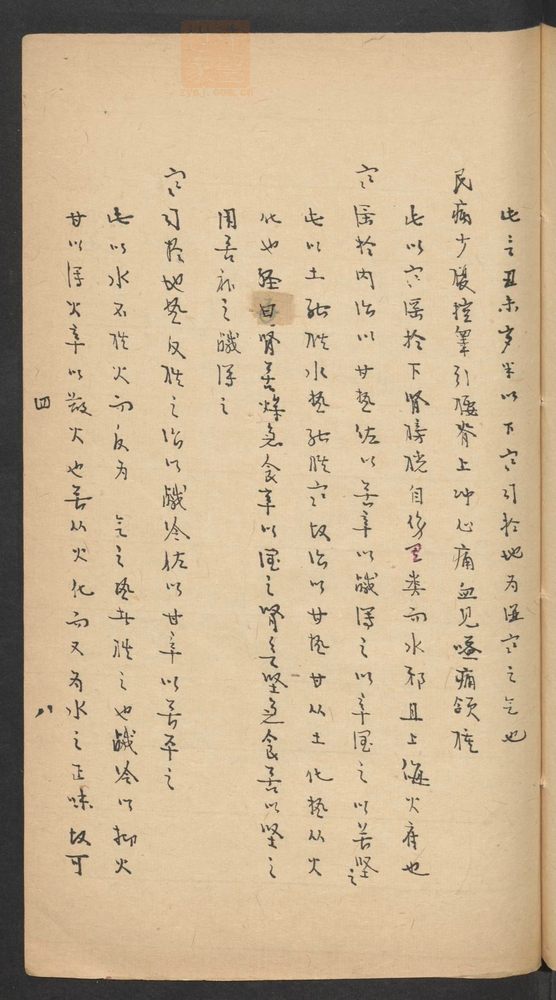 此言丑未岁半以下寒司於地为湿寒之气也
民病少腹控睾引腰脊上冲心痛血见嗌痛颔肿
此以寒淫於下肾膀胱自伤其类而水邪且上侮火府也
寒淫於内治以甘热佐以苦辛以咸泻之以辛润之以苦坚之
此以土能胜水热能胜寒故治以甘热甘从土化热从火
化也经曰肾苦燥急食辛以润之肾气坚急食苦以坚之
用苦补之咸泻之
寒司於地热反胜之治以咸冷佐以甘辛以苦平之
此以水不胜火而反为 气之热者胜之也咸冷以抑火
甘以泻火辛以散火也苦从火化而又为水之正味故可
四
八